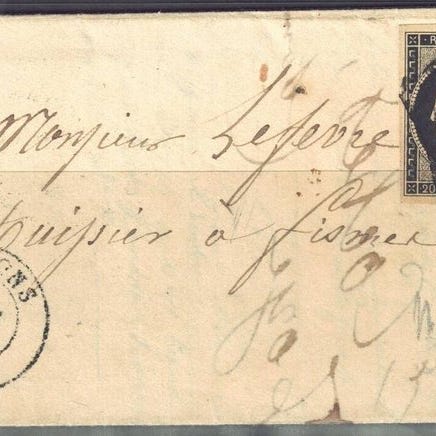 R
Monsieur Lefevre
huissier à fismes
20
ONS